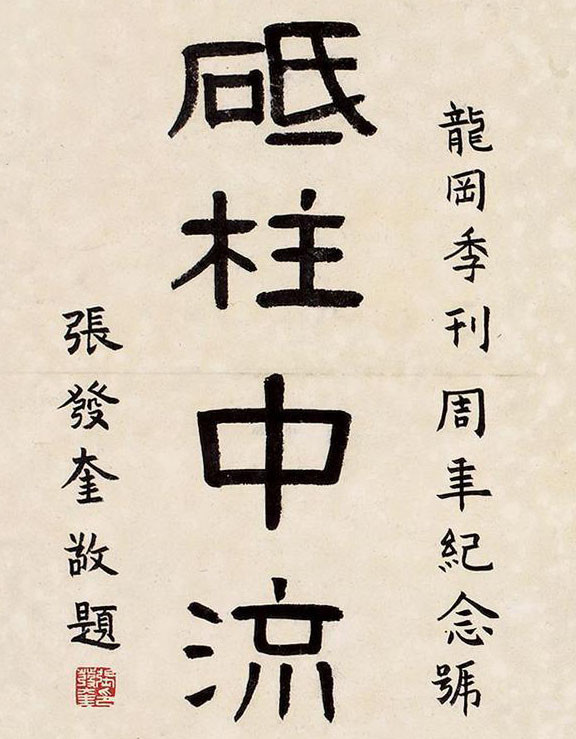 龍岡季刊周年紀念號
砥柱中流
張發奎敬題
張發奎印